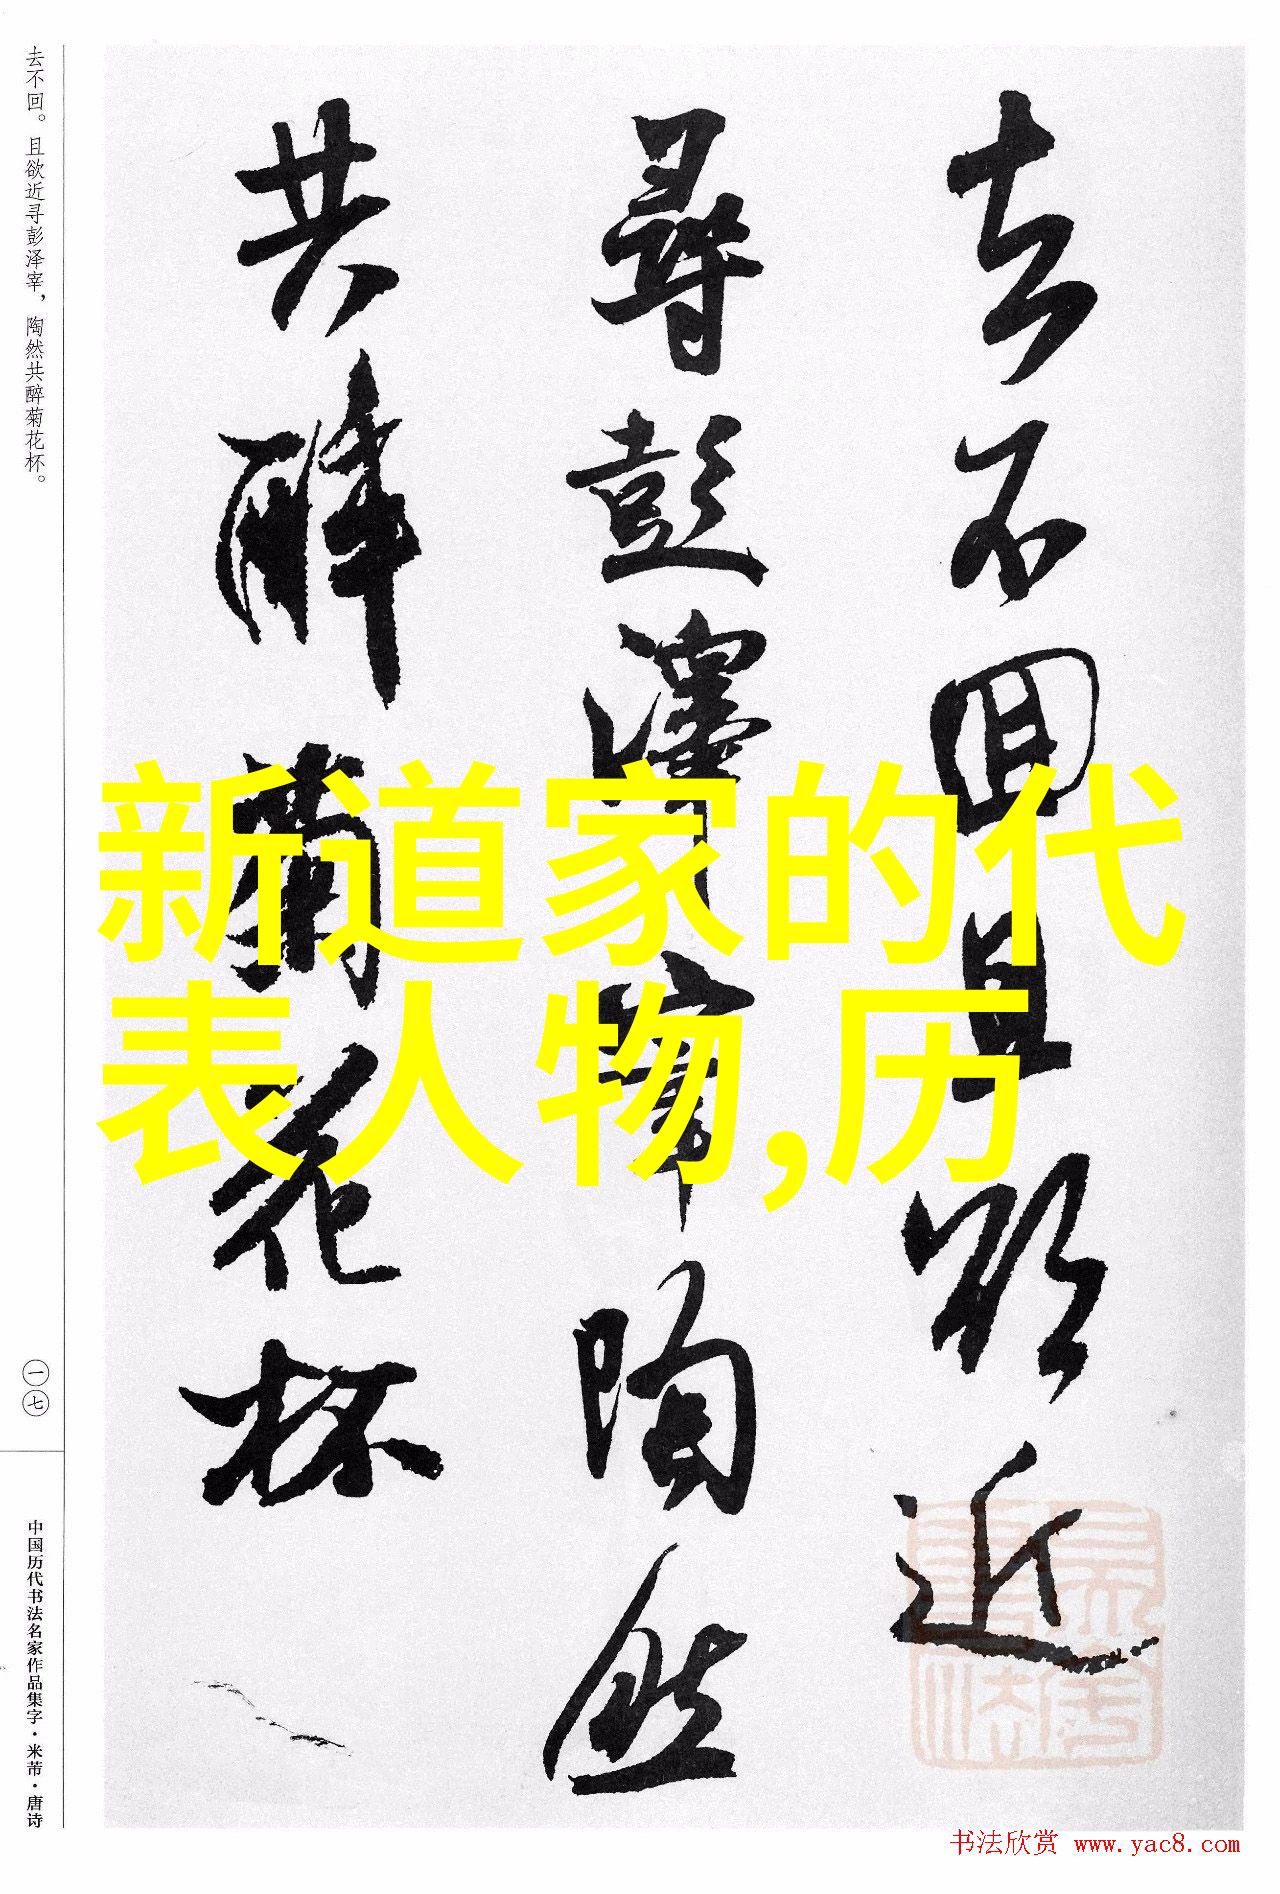 去不回且欲近
尋彭澤宰陶然
共醉菊花杯
新道家的代
表人物,历
去不回。且欲近寻彭泽宰，陶然共醉菊花杯。
一七
中国历代书法名家作品集字·米芾·唐诗
书法欣赏 www.yac8.com